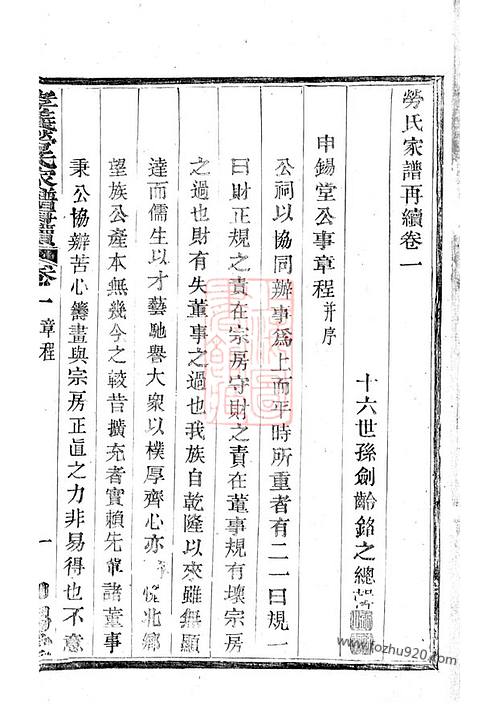 勞氏家譜再續卷一
十六世孫劍齡銘之總
申錫堂公事章程并序
公祠以協同辦事爲上而平時所重者有二一曰規一
曰財正規之責在宗房守財之責在董事規有壞宗房
之過也財有失董事之過也我族自乾隆以來雖無顯
達而儒生以才藝馳譽大衆以樸厚齊心亦 北鄉
望族公產本無幾今之較昔擴充者實賴先輩諸董事
秉公協辦苦心籌畫與宗房正直之力非易得也不意
勞氏家譜再續 卷一 章程
一
www.tozhu920.com